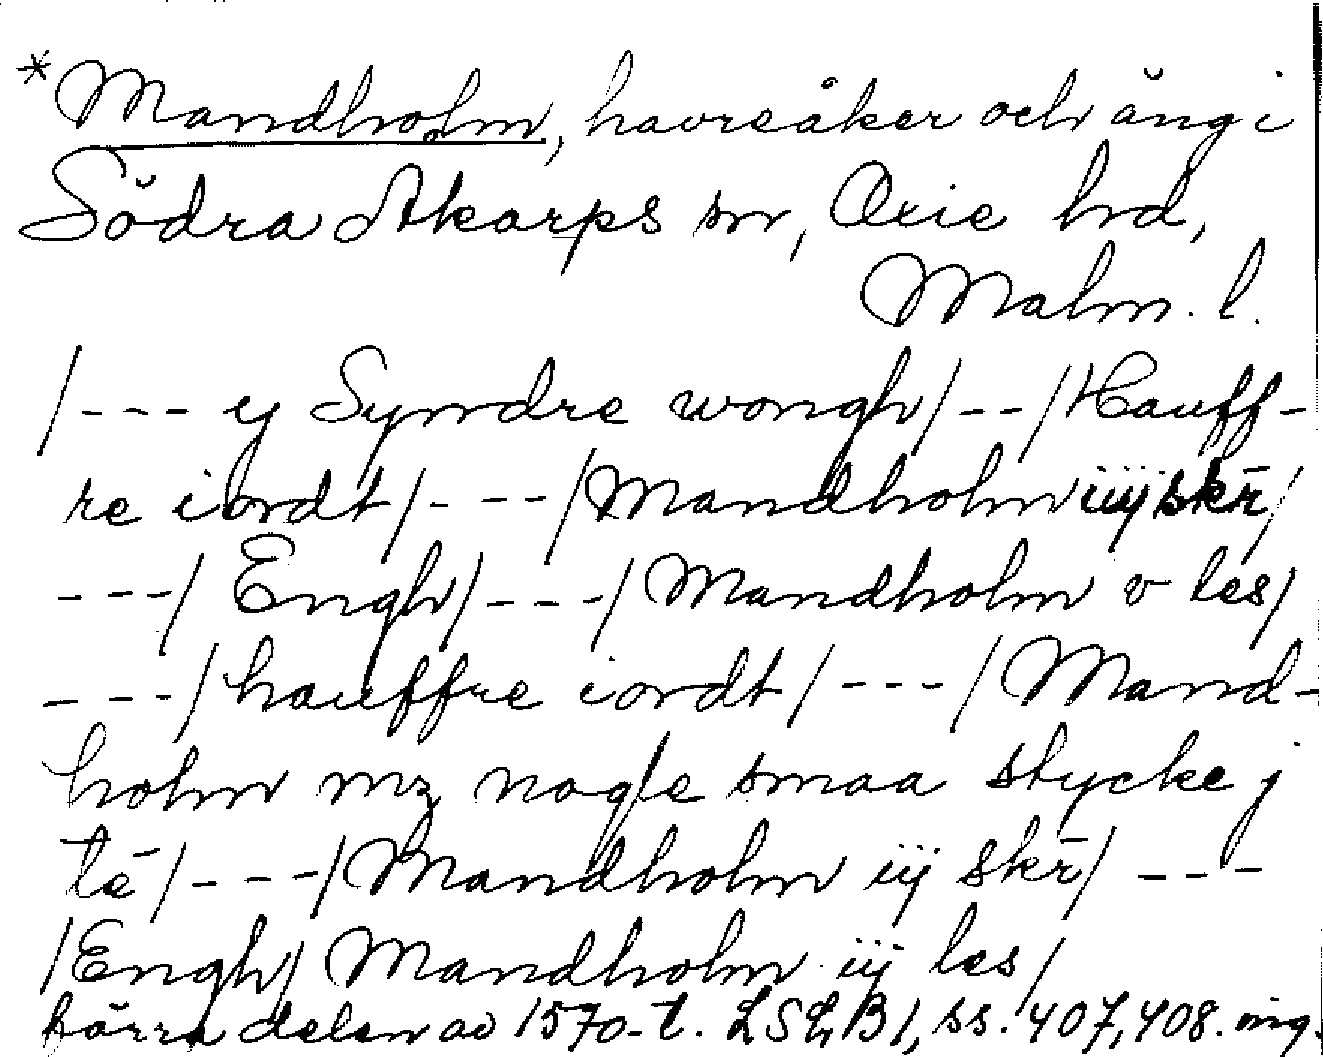 *Mandholm, havreåker och äng i
Södra Åkarps sn, Oxie hd,
Malm. l.
/--- ij Syndre wongh/--/Hauff-
re iordt/---/Mandholm iiij skr̄/
---/Engh/---/Mandholm v les/
---/hauffre iordt/---/Mand-
holm mz nogle smaa stycke j
tē/---/Mandholm iij skr̄/---
/Engh/ Mandholm iij les/
förra delen av 1570-t. LSLB 1, ss. 407, 408. ing.